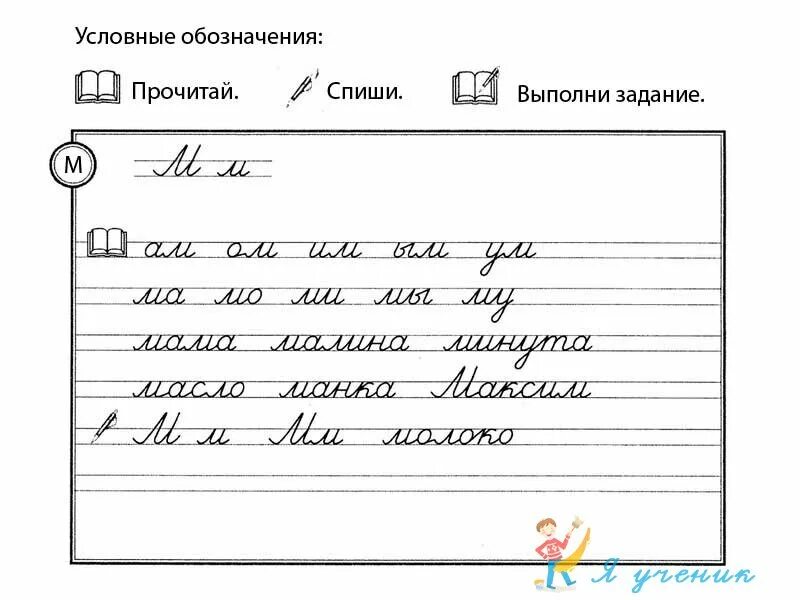 Условные обозначения:
Прочитай. Спиши. Выполни задание.
М
М м
ам ом им ым ум
ма мо ми мы му
мама малина минута
масло манка Максим
М м Мм молоко
Я ученик